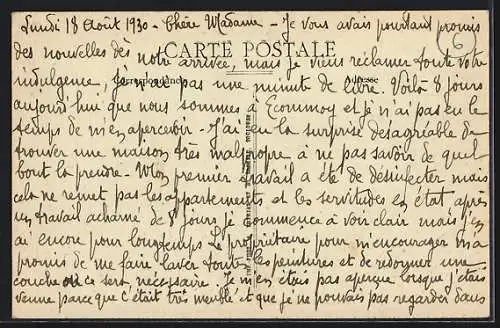 Lundi 18 Août 1930 - Chère Madame - Je vous avais pourtant promis
des nouvelles dès notre arrivée, mais je viens réclamer toute votre
CARTE POSTALE
6
indulgence, je n'ai pas une minute de libre. Voilà 8 jours
Correspondance
Adresse
aujourd'hui que nous sommes à Ecommoy et je n'ai pas eu le
temps de m'en apercevoir - J'ai eu la surprise désagréable de
trouver une maison très malpropre à ne pas savoir de quel
bout la prendre. Mon premier travail a été de désinfecter mais
cela ne remet pas les appartements et les servitudes en état après
un travail acharné de 8 jours je commence à voir clair mais j'en
ai encore pour longtemps. Le propriétaire pour m'encourager m'a
promis de me faire laver toutes les peintures et de redonner une
couche où ce sera nécessaire. Je m'en étais pas aperçue lorsque j'étais
venue parce que c'était très meublé et que je ne pouvais pas regarder dans